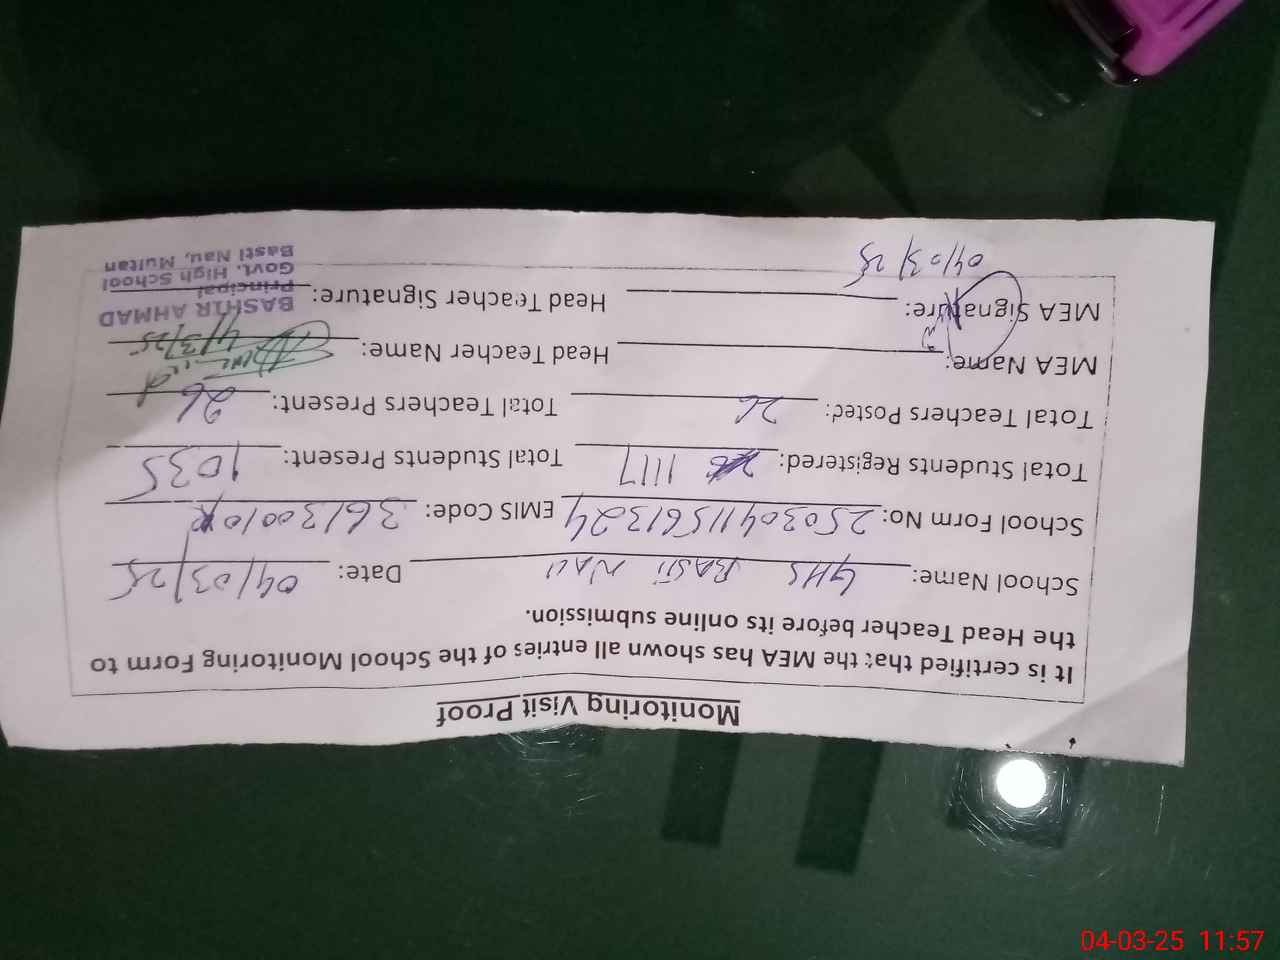 Monitoring Visit Proof
It is certified that the MEA has shown all entries of the School Monitoring Form to
the Head Teacher before its online submission.
School Name: GHS BASTI NAU Date: 04/03/25
School Form No: 25030411561324 EMIS Code: 36130010
Total Students Registered: 1117 Total Students Present: 1035
Total Teachers Posted: 26 Total Teachers Present: 26
MEA Name: Head Teacher Name: 4/3/25
MEA Signature: Head Teacher Signature:
04/03/25
BASHIR AHMAD
Principal
Govt. High School
Basti Nau, Multan
04-03-25 11:57